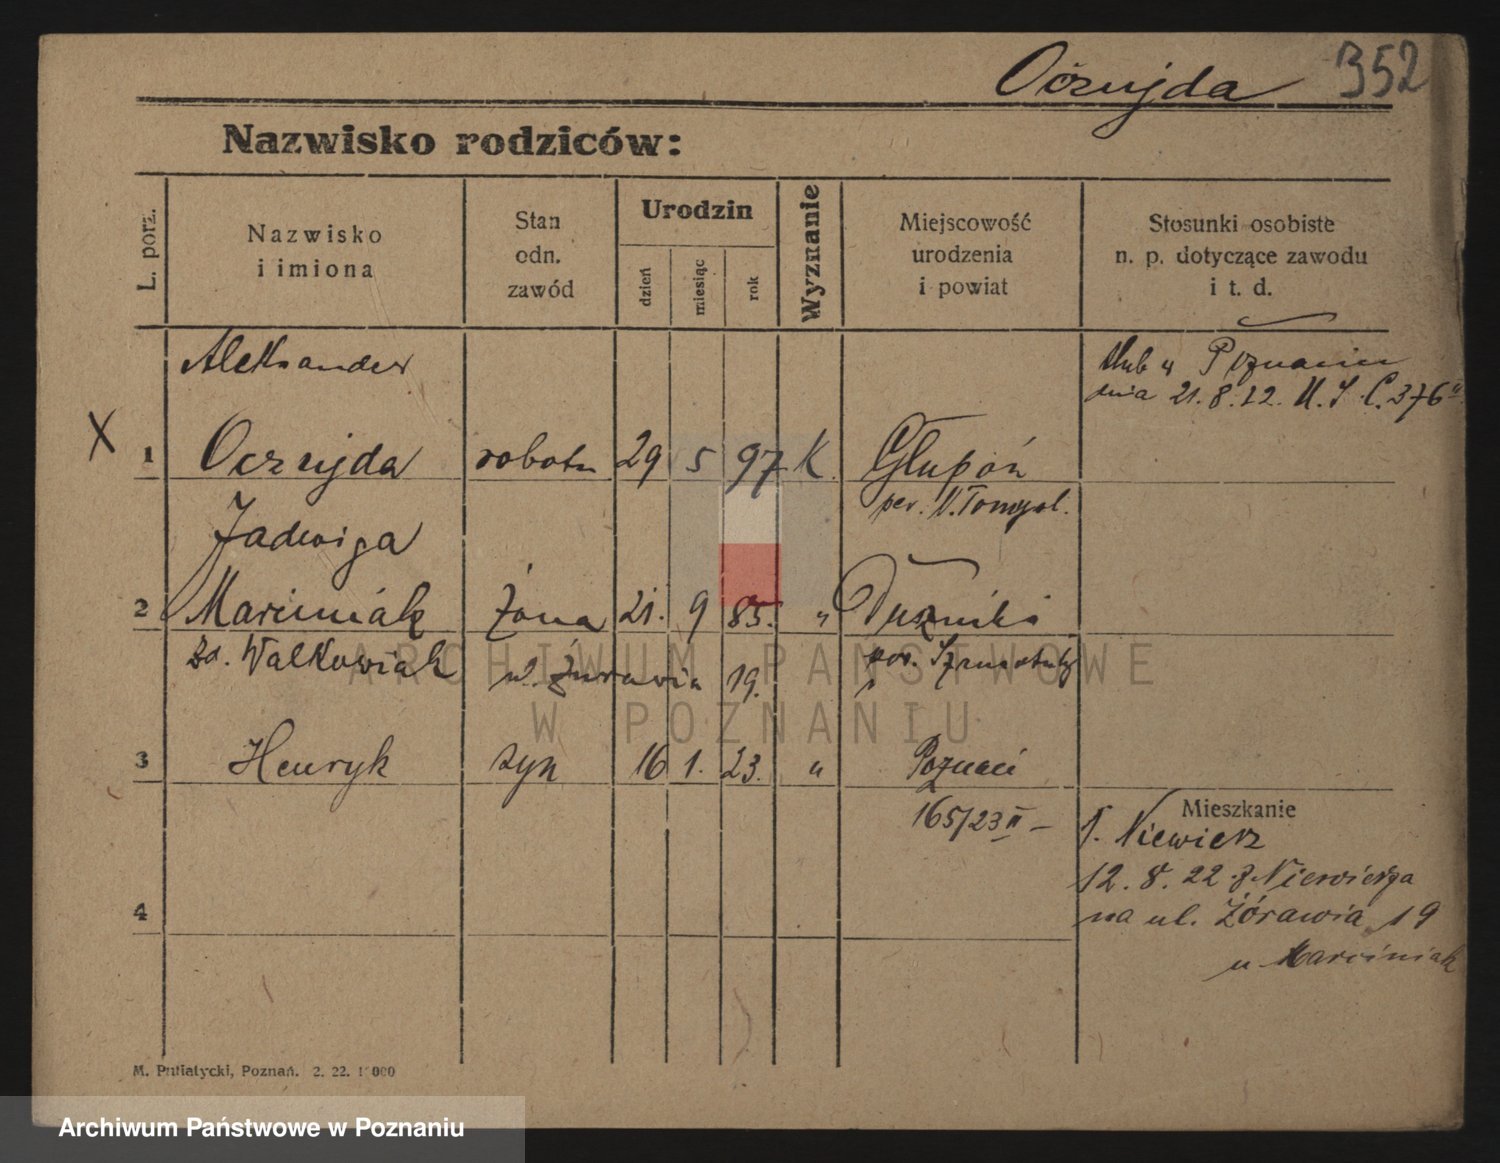 Oczujda 352
Nazwisko rodziców:
L. porz.
Nazwisko
i imiona
Stan
odn.
zawód
Urodzin
dzień
miesiąc
rok
Wyznanie
Miejscowość
urodzenia
i powiat
Stosunki osobiste
n. p. dotyczące zawodu
i t. d.
Aleksander
X 1 Oczujda robotn 29 5 97 K. Głupoń
pow. N. Tomysl.
ślub w Poznaniu
dnia 21.8.22. U. S. C. 376
Jadwiga
2 Marciniak żona 21. 9 85. " Duszniki
zd. Walkowiak ul. Żurawia 19. pow. Szamotuły
3 Henryk syn 16 1. 23. " Poznań
165/23 II –
Mieszkanie
Niewierz
12. 8. 22 z Niewierza
na ul. Żórawia 19
u Marciniak
4
M. Putiatycki, Poznań. 2. 22. 000
ARCHIWUM PAŃSTWOWE
W POZNANIU
Archiwum Państwowe w Poznaniu